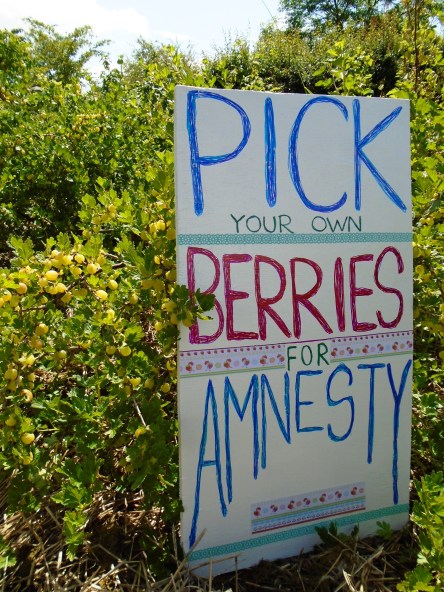 PICK
YOUR OWN
BERRIES
FOR
AMNESTY